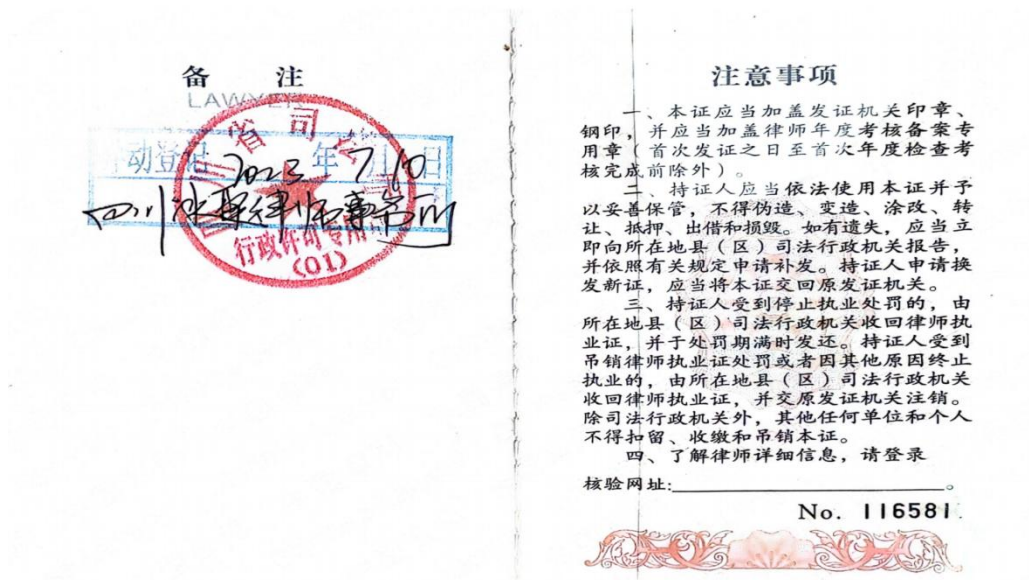 备 注
LAWYER
2023 年 7 月 10 日
四川 律师事务所
行政许可专用
(01)
注意事项
一、本证应当加盖发证机关印章、
钢印，并应当加盖律师年度考核备案专
用章（首次发证之日至首次年度检查考
核完成前除外）。
二、持证人应当依法使用本证并予
以妥善保管，不得伪造、变造、涂改、转
让、抵押、出借和损毁。如有遗失，应当立
即向所在地县（区）司法行政机关报告，
并依照有关规定申请补发。持证人申请换
发新证，应当将本证交回原发证机关。
三、持证人受到停止执业处罚的，由
所在地县（区）司法行政机关收回律师执
业证，并于处罚期满时发还。持证人受到
吊销律师执业证处罚或者因其他原因终止
执业的，由所在地县（区）司法行政机关
收回律师执业证，并交原发证机关注销。
除司法行政机关外，其他任何单位和个人
不得扣留、收缴和吊销本证。
四、了解律师详细信息，请登录
核验网址:。
No. 116581